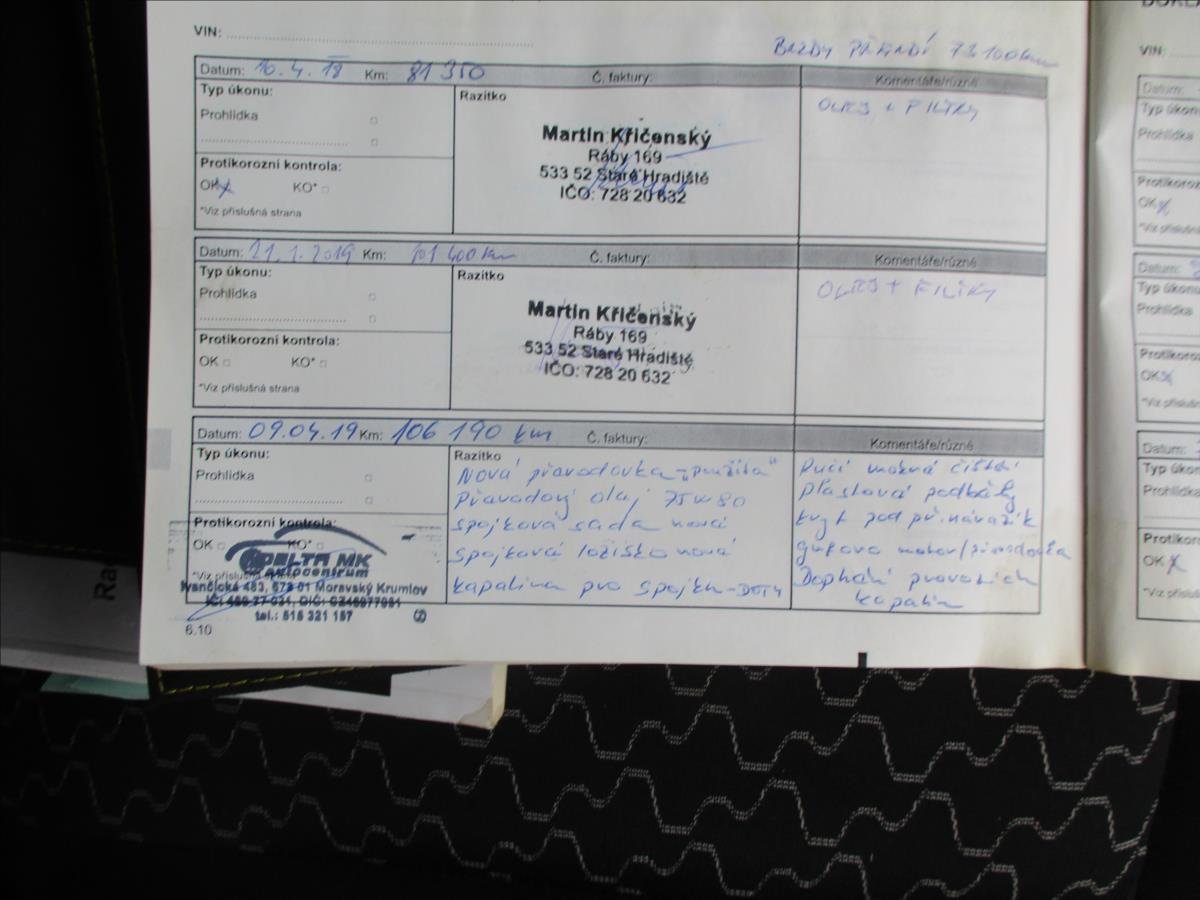 VIN:
BRZDY PŘEDNÍ 73100km
Datum: 10.4.18 Km: 81 350 Č. faktury: Komentáře/různé
Typ úkonu:
Prohlídka
Protikorozní kontrola:
OK KO*
*Viz příslušná strana
Razítko
Martin Křičenský
Ráby 169
533 52 Staré Hradiště
IČO: 728 20 632
OLEJ + FILTRY
Datum: 21.1.2019 Km: 101 400 km Č. faktury: Komentáře/různé
Typ úkonu:
Prohlídka
Protikorozní kontrola:
OK KO*
*Viz příslušná strana
Razítko
Martin Křičenský
Ráby 169
533 52 Staré Hradiště
IČO: 728 20 632
OLEJ + FILTRY
Datum: 09.04.19 Km: 106 190 km Č. faktury: Komentáře/různé
Typ úkonu:
Prohlídka
Protikorozní kontrola:
OK KO*
*Viz příslušná
DELTA MK
autocentrum
Ivančická 483, 672 01 Moravský Krumlov
tel.: 515 321 157
Razítko
Nová převodovka "použitá"
Převodový olej 75W80
spojková sada nová
spojková ložisko nová
kapalina pro spojku - DOT4
Ruční čištění
plastová podběhy
kryt pod př. nárazník
motor/převodovka
kapalin
6.10
VIN:
Datum:
Typ úkonu
Prohlídka
Protikoroz
OK
*Viz příslušn
Datum:
Typ úkonu
Prohlídka
Protikoroz
OK
*Viz příslušn
Datum:
Typ úkon
Prohlídka
Protikoro
OK
*Viz příslu